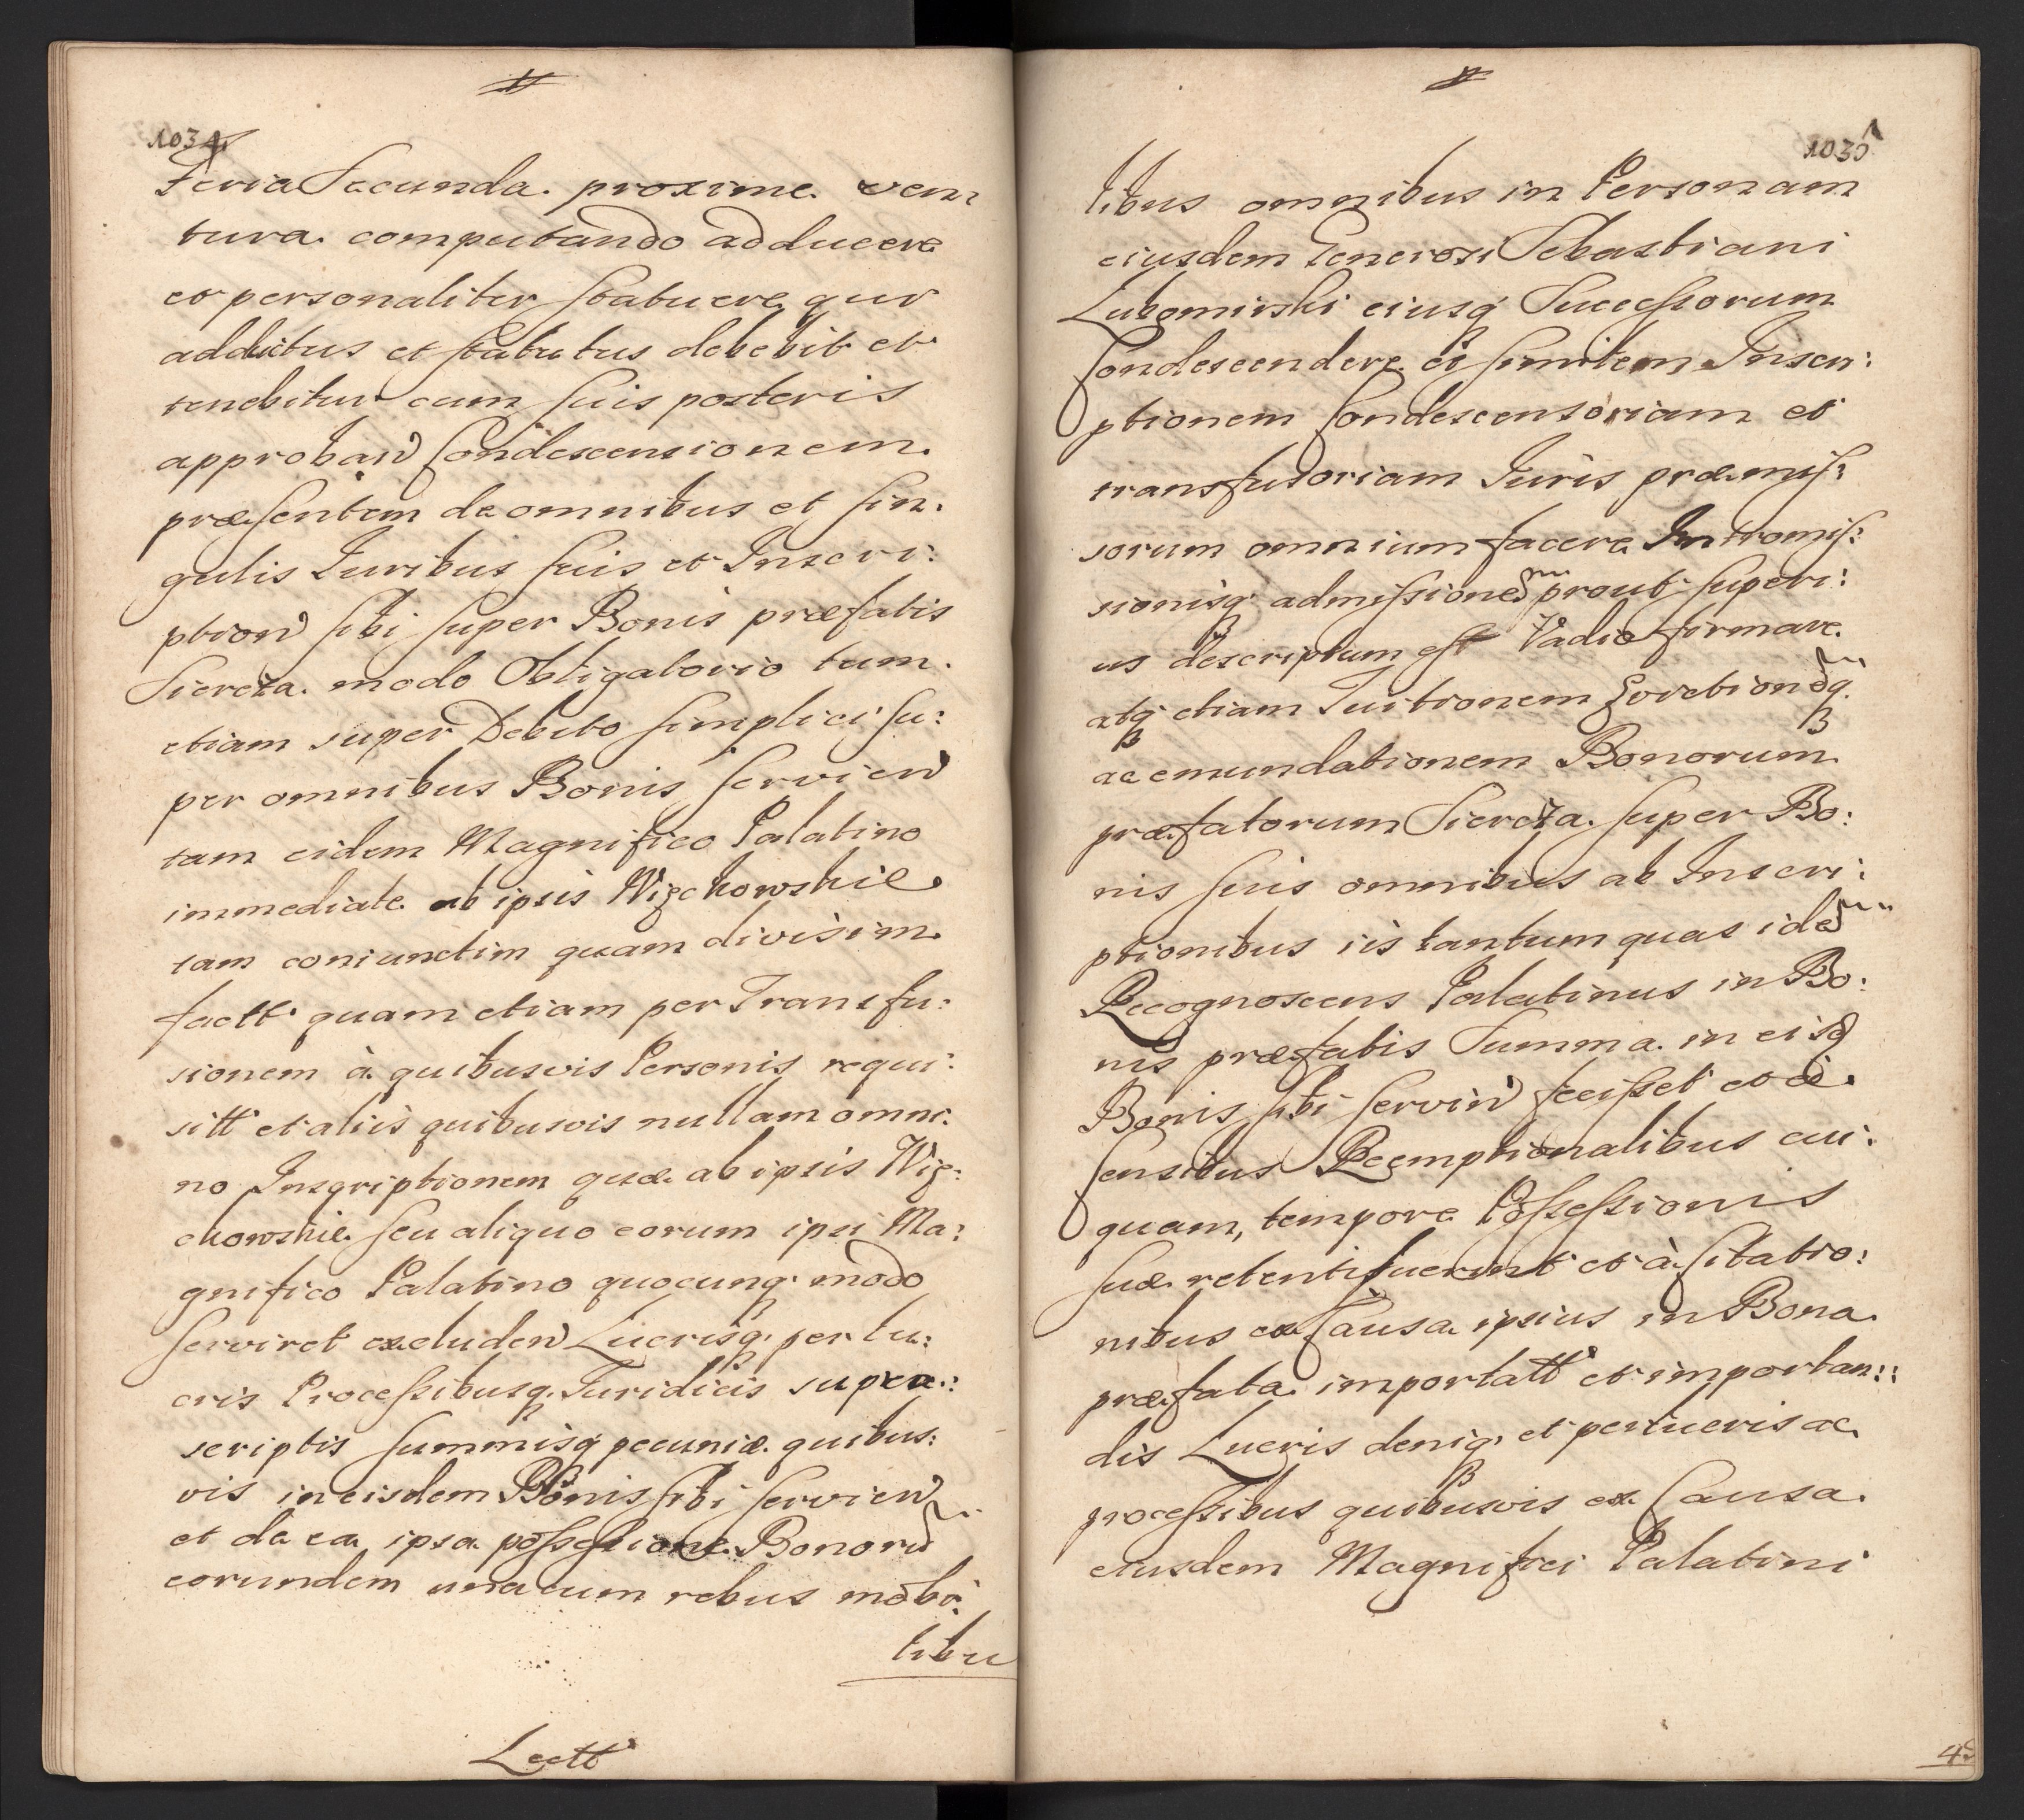 1034
Feria Secunda proxime ven:
tura computando adducere
et personaliter statuere qui
addictus et statutus debebit et
tenebitur cum suis posteris
approband Condescensionem
præsentem de omnibus et sin:
gulis Juribus suis et Inscri:
ption sibi super Bonis præfatis
Siercza modo Obligatorio tum
etiam super Debito simplici su:
per omnibus Bonis servien
tam eidem Magnifico Palatino
immediate ab ipsis Więchowskie
tam coniunctim quam divisim
factt quam etiam per Transfu:
sionem à quibusvis Personis requi:
sitt et aliis quibusvis nullam omni:
no Inscriptionem quæ ab ipsis Wię:
chowskie seu aliquo eorum ipsi Ma:
gnifico Palatino quocunq modo
serviret excluden Lucrisq per lu:
cris Processibusq Juridicis supra:
scriptis summisq pecuniæ quibus:
vis in eisdem Bonis sibi servien
et de ea ipsa possessione Bonorum
eorundem una cum rebus mobi:
libu
Lectt
1035
libus omnibus in Personam
eiusdem Generosi Sebastiani
Lubomirski eiusq Successorum
Condescendere et similem Inscri:
ptionem Condescensoriam et
transfusoriam Juris præmis:
sorum omnium facere Intromis:
sionisq admissionem prout superi:
us descriptum est Vadio firmare
atq etiam Tuitionem Evictionemq
ac emundationem Bonorum
præfatorum Siercza super Bo:
nis suis omnibus ab Inscri:
ptionibus iis tantum quas idem
Recognoscens Palatinus in Bo:
nis præfatis Summa in eisd
Bonis sibi servien fecisset et à
Censibus Reemptionalibus cui:
quam, tempore Possessionis
suæ retenti fuerint et à Citatio:
nibus ex Causa ipsius in Bona
præfata importatt et importan:
dis Lucris deniq et perlucris ac
processibus quibusvis ex Causa
eiusdem Magnifici Palatini